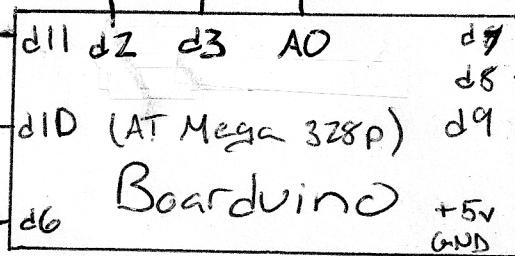 d11 d2 d3 A0 d7
d8
d10 (AT Mega 328p) d9
Boarduino
d6 +5v
GND